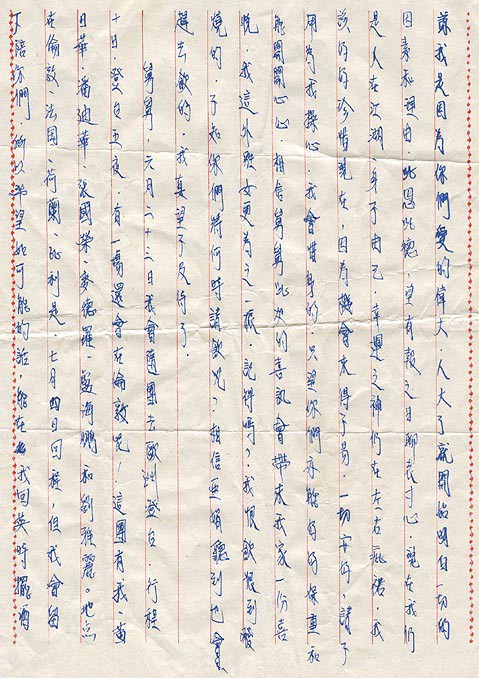 讓我是因為你們愛的偉大，人大了就開始明白一切的
因素和理由，此恩此德，望有報之日聊表寸心，現在我們
是人在江湖，身子由己，幸運之神仍在左右庇祐，我
該好好珍惜現在，因為機會來得不易，一切安好，請予
用為我操心，我會惜身的，只望你們亦能好好保重和
能開開心心，相信舅舅此次的喜訊會帶來我家一份喜
悅，我這外甥女更為之一振，記得嗎？我恨飲恨到發
燒的，不知你們將何時請飲呢？相信亞婿聽到也會
趕去飲的，我真望不及待了。
舅舅，六月二十三日我會隨團去歐洲登台，行程
十日，登台五夜，有一場還會在倫敦呢！這團有我、黃
日華、潘迪華、張國榮、麥德羅、夏海鷹和劉雅麗。地点
在倫敦、法國、荷蘭、比利是，七月四日回程，但我會留
下陪你們，所以希望如可能的話，能在我回英時擺酒